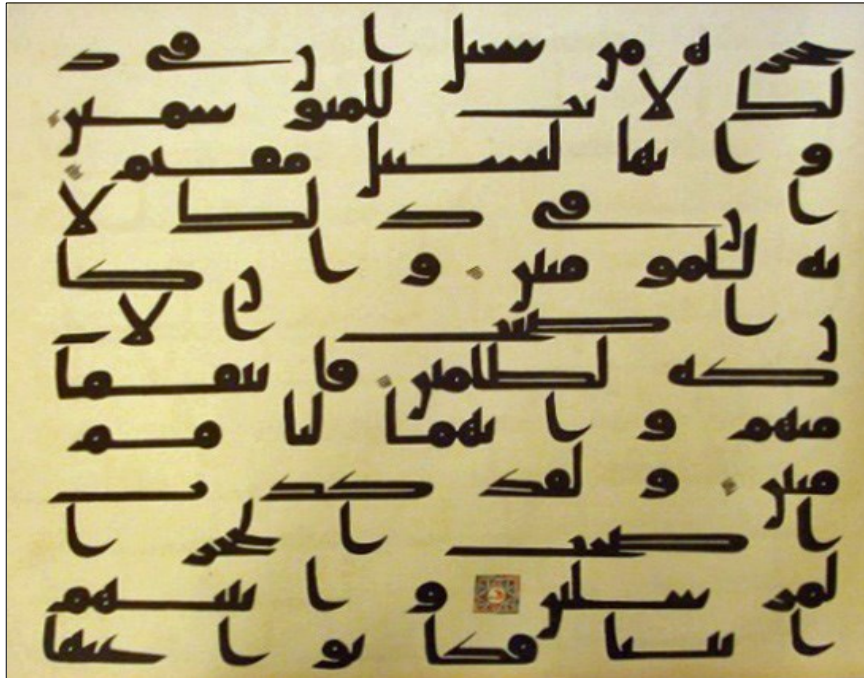 حجرة من سجيل ان في ذ
لك لايت للمتوسمين
وانها لبسبيل مقيم
ان في ذلك لا
ية للمومنين وان كا
ن اصحب الاي
كة لظلمين فانتقمنا
منهم وانهما لبامم
مبين ولقد كذب
اصحب الحجر ا
لمرسلين واتينهم
ايتنا فكانوا عنها